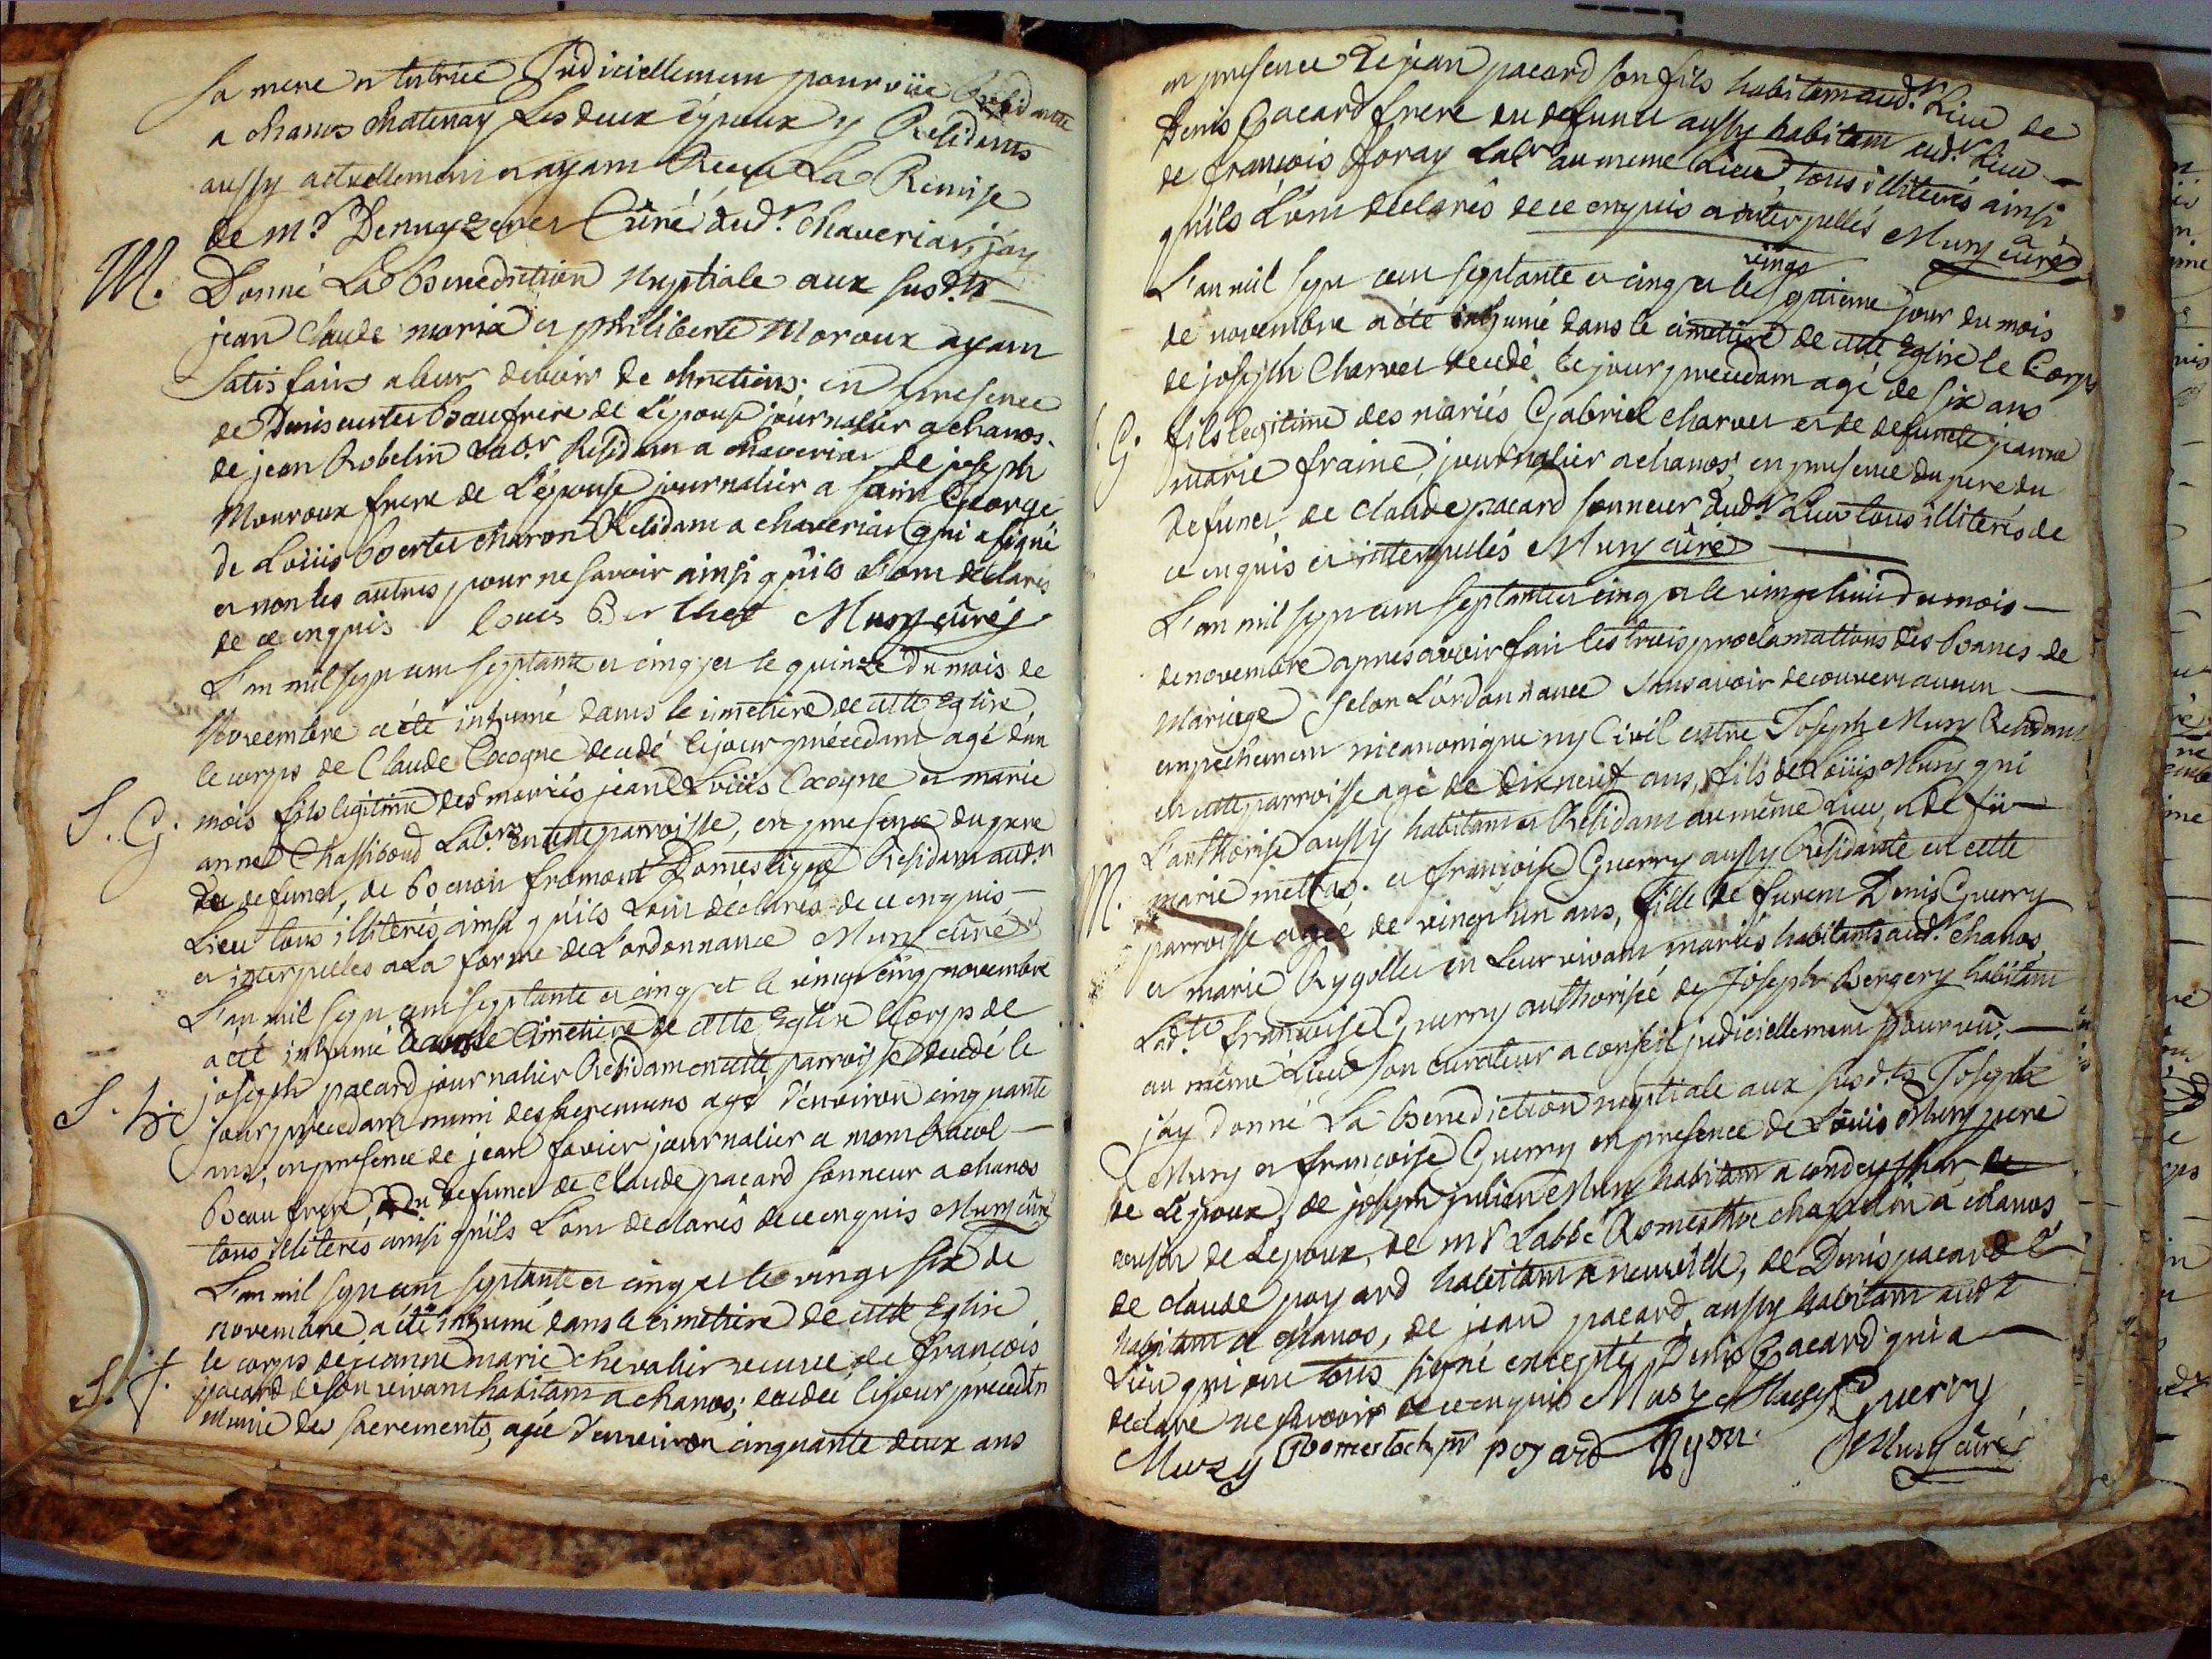 sa mere et tutrice Judiciellement pourvüe Residante
a chanos chatenay Les deux époux y Residents
aussy actuellement et ayant Reçu La Remise
de mr Curé dudt. Chaveriat, j'ay
M. Donné La Benediction Nuptiale aux susdts
jean Claude moria et philiberte Moroux ayant
satisfaits a leur devoir de chretiens. en presence
de Denis beaufrere de L'épouse journalier a chanos.
de jean Robelin Labr. Residant a chaveriat de joseph
Mouroux frere de L'épouse journalier a saint George
de Loüis Bertet charon Residant a chaveriat qui a signé
et non les autres pour ne savoir ainsi qu'ils L'ont déclarés
de ce enquis Louis Berthet Musy curé
L'an mil sept cent septante et cinq et le quinze du mois de
Novembre a été inhumé dans le cimetiere de cette Eglise
le corps de Claude Cocogne decedé le jour précedant agé d'un
S. G. mois fils legitime des mariés jean Loüis Cocogne et marie
anne Chassiboud Labrs en cette parroisse, en presence du pere
du defunct, de Benoit fromont Domestique Residant audt
Lieu tous illiterés ainsi qu'ils L'ont déclarés de ce enquis
et interpellés a La forme de L'ordonnance Musy curé
L'an mil sept cent septante et cinq et le vingt cinq novembre
a été inhumé dans le cimetiere de cette Eglise le Corps de
joseph pacard journalier Residant en cette parroisse decedé le
S. h. jour précedant muni des sacrements agé d'environ cinquante
ans; en presence de jean favier journalier a montracol
Beau frere, du defunct de Claude pacard sonneur a chanos
tous illiterés ainsi qu'ils L'ont declarés de ce enquis Musy curé
L'an mil sept cent septante et cinq et le vingt six de
novembre a été inhumé dans le cimetiere de cette Eglise
le corps de jeanne marie chevalier veuve de François
S. f. pacard de son vivant habitant a chanos; decedée le jour précedent
Munie des sacrements, agée d'environ cinquante deux ans
en presence de jean pacard son fils habitant audt. Lieu de
Denis Pacard frere du defunct aussy habitant audt Lieu
de françois foray Labr au meme Lieu, tous illiterés ainsi
qu'ils L'ont declarés de ce enquis et interpellés Musy curé
vingt
L'an mil sept cent septante et cinq et le septieme jour du mois
de novembre a été inhumé dans le cimetiere de cette Eglise le Corps
de joseph Charvet decedé le jour precedant agé de six ans
G. fils legitime des mariés Gabriel charvet et de defuncte jeanne
marie fraine journalier a chanos, en presence du pere du
defunct de Claude pacard sonneur dudt Lieu tous illiterés de
ce enquis et interpellés Musy curé
L'an mil sept cent septante et cinq et le vingt huit du mois
de novembre apres avoir fait les trois proclamations des Bancs de
Mariage selon L'ordonnance sans avoir decouvert aucun
empechement ni canonique ny Civil entre Joseph Musy Residant
en cette parroisse agé de dix neuf ans, fils de Loüis Musy qui
L'authorise aussy habitant et Residant au même Lieu, et de füe
M. marie mettras. et françoise Guerry aussy Residante en cette
parroisse agée de vingt un ans, fille de furent Denis Guerry
et marie Rygollet en Leur vivant mariés habitants audt. chanos,
Ladte françoise Guerry authorisée de Joseph Bergery habitant
au même Lieu son curateur a conseil judiciellement pourvu.
j'ay donné La Benediction nuptiale aux susdts Joseph
Musy et françoise Guerry en presence de Loüis Musy pere
de L'époux, de joseph julien Musy habitant a condeyssiat de
cousin de L'epoux, de mr L'abbé chapelain a chanos
de claude poyard habitant a neuville, de Denis pacard
habitant a chanos, de jean pacard, aussy habitant audt
Lieu qui ont tous signé excepté Denis Pacard qui a
déclaré ne savoir de ce enquis Musy Musy Guerry
Musy poyard Musy curé